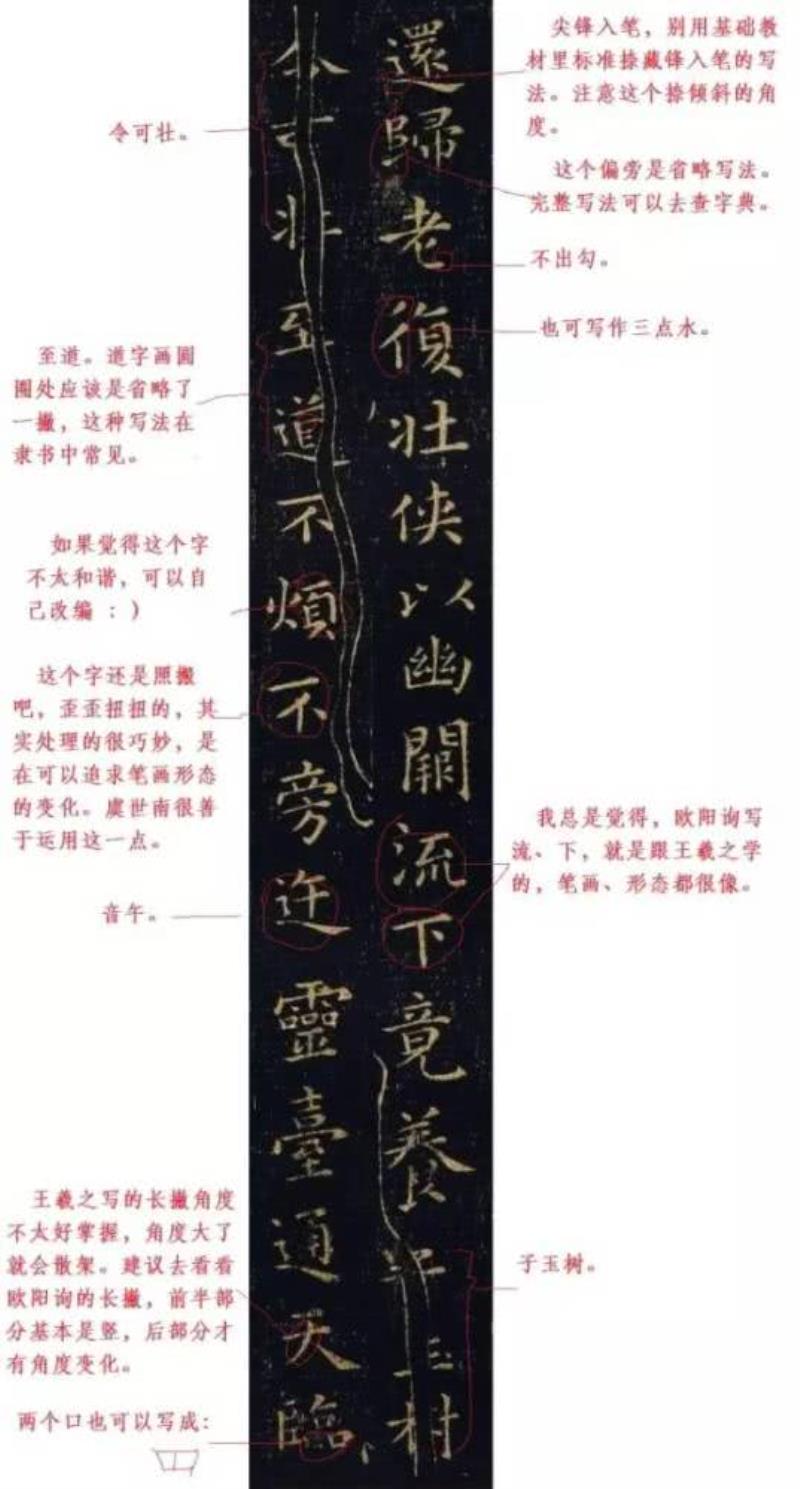 還歸老復壯俠以幽闕流下竟養子玉樹
令可壯至道不煩不旁迕靈臺通天臨
尖锋入笔,别用基础教
材里标准捺藏锋入笔的写
法。注意这个捺倾斜的角
度。
这个偏旁是省略写法。
完整写法可以去查字典。
不出勾。
也可写作三点水。
我总是觉得,欧阳询写
流、下,就是跟王羲之学
的,笔画、形态都很像。
子玉树。
令可壮。
至道。道字画圆
圈处应该是省略了
一撇,这种写法在
隶书中常见。
如果觉得这个字
不太和谐,可以自
己改编 :)
这个字还是照搬
吧,歪歪扭扭的,其
实处理的很巧妙,是
在可以追求笔画形态
的变化。虞世南很善
于运用这一点。
音午。
王羲之写的长撇角度
不太好掌握,角度大了
就会散架。建议去看看
欧阳询的长撇,前半部
分基本是竖,后部分才
有角度变化。
两个口也可以写成: